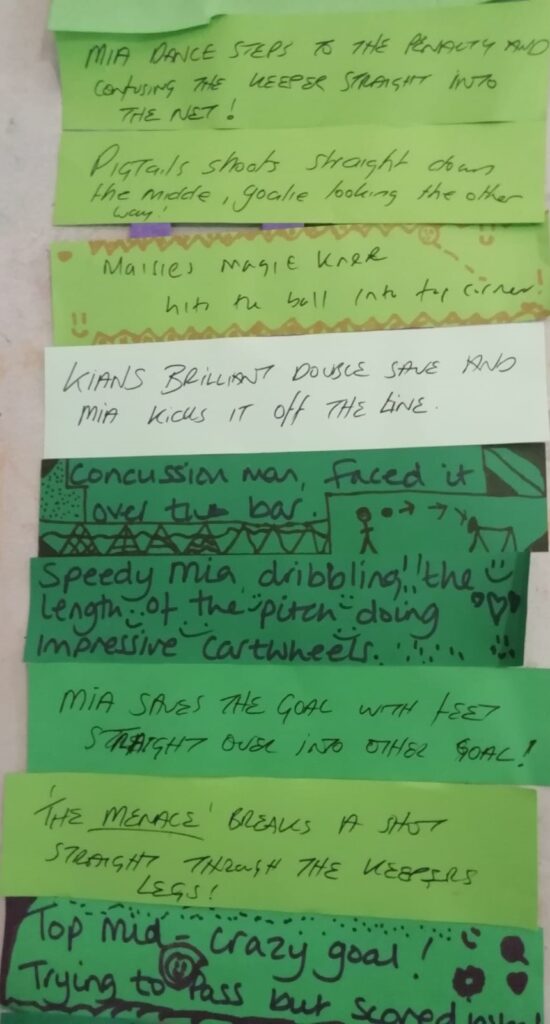 MIA DANCE STEPS TO THE PENALTY AND
CONFUSING THE KEEPER STRAIGHT INTO
THE NET!
PIGTAILS shoots straight down
the middle, goalie looking the other
way!
Maisies magic knee
hits the ball into top corner!
KIANS BRILLIANT DOUBLE SAVE AND
MIA KICKS IT OFF THE LINE.
Concussion man, faced it
over the bar.
Speedy Mia dribbling!! the
length of the pitch doing
impressive cartwheels.
MIA SAVES THE GOAL WITH FEET
STRAIGHT OVER INTO OTHER GOAL!
'THE MENACE' BREAKS A SHOT
STRAIGHT THROUGH THE KEEPERS
LEGS!
Top Mid - crazy goal!
Trying to Pass but scored